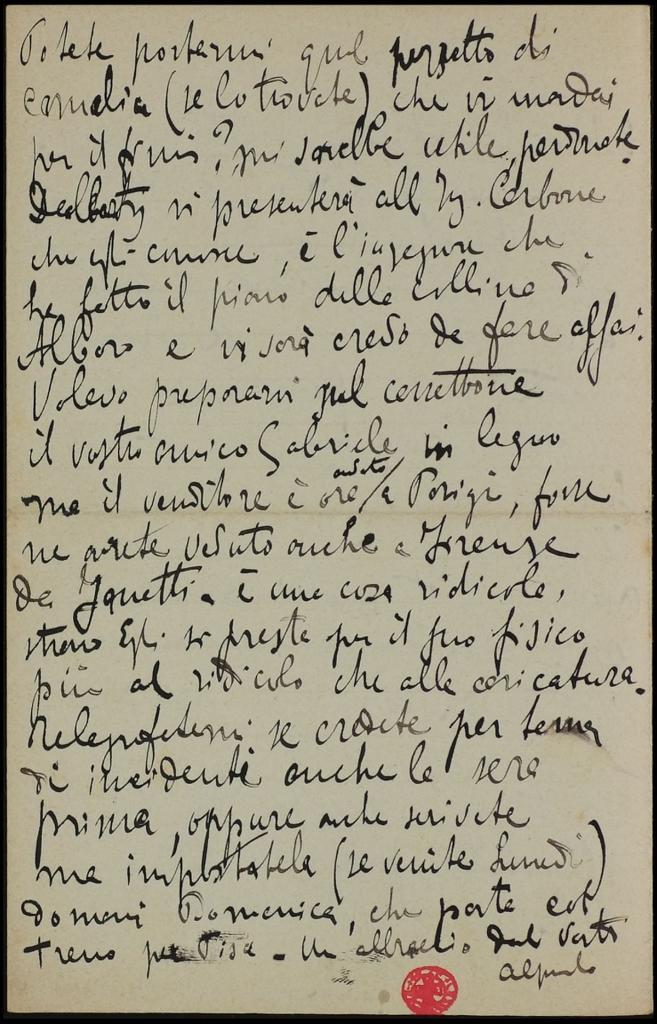 Potete portarmi quel pezzetto di
camelia (se lo trovate) che vi mandai
per il ? mi sarebbe utile, perdonate.
vi presenterà all'Ing. Carbone
che egli conosce, è l'ingegnere che
ha fatto il piano della collina di
Albaro e vi sarà credo da fare assai.
Volevo prepararvi sul
il vostro amico Gabriele in legno
ma il venditore è ora andato a Parigi, forse
ne avrete veduto anche a Firenze
da Janetti. è una cosa ridicola,
strano Egli si presta per il suo fisico
più al ridicolo che alla caricatura.
Telegrafatemi se credete per tema
di incidenti anche la sera
prima, oppure anche scrivete
ma impostatela (se venite Lunedì)
domani Domenica, che parta col
treno per Pisa - Un abbraccio dal Vostro